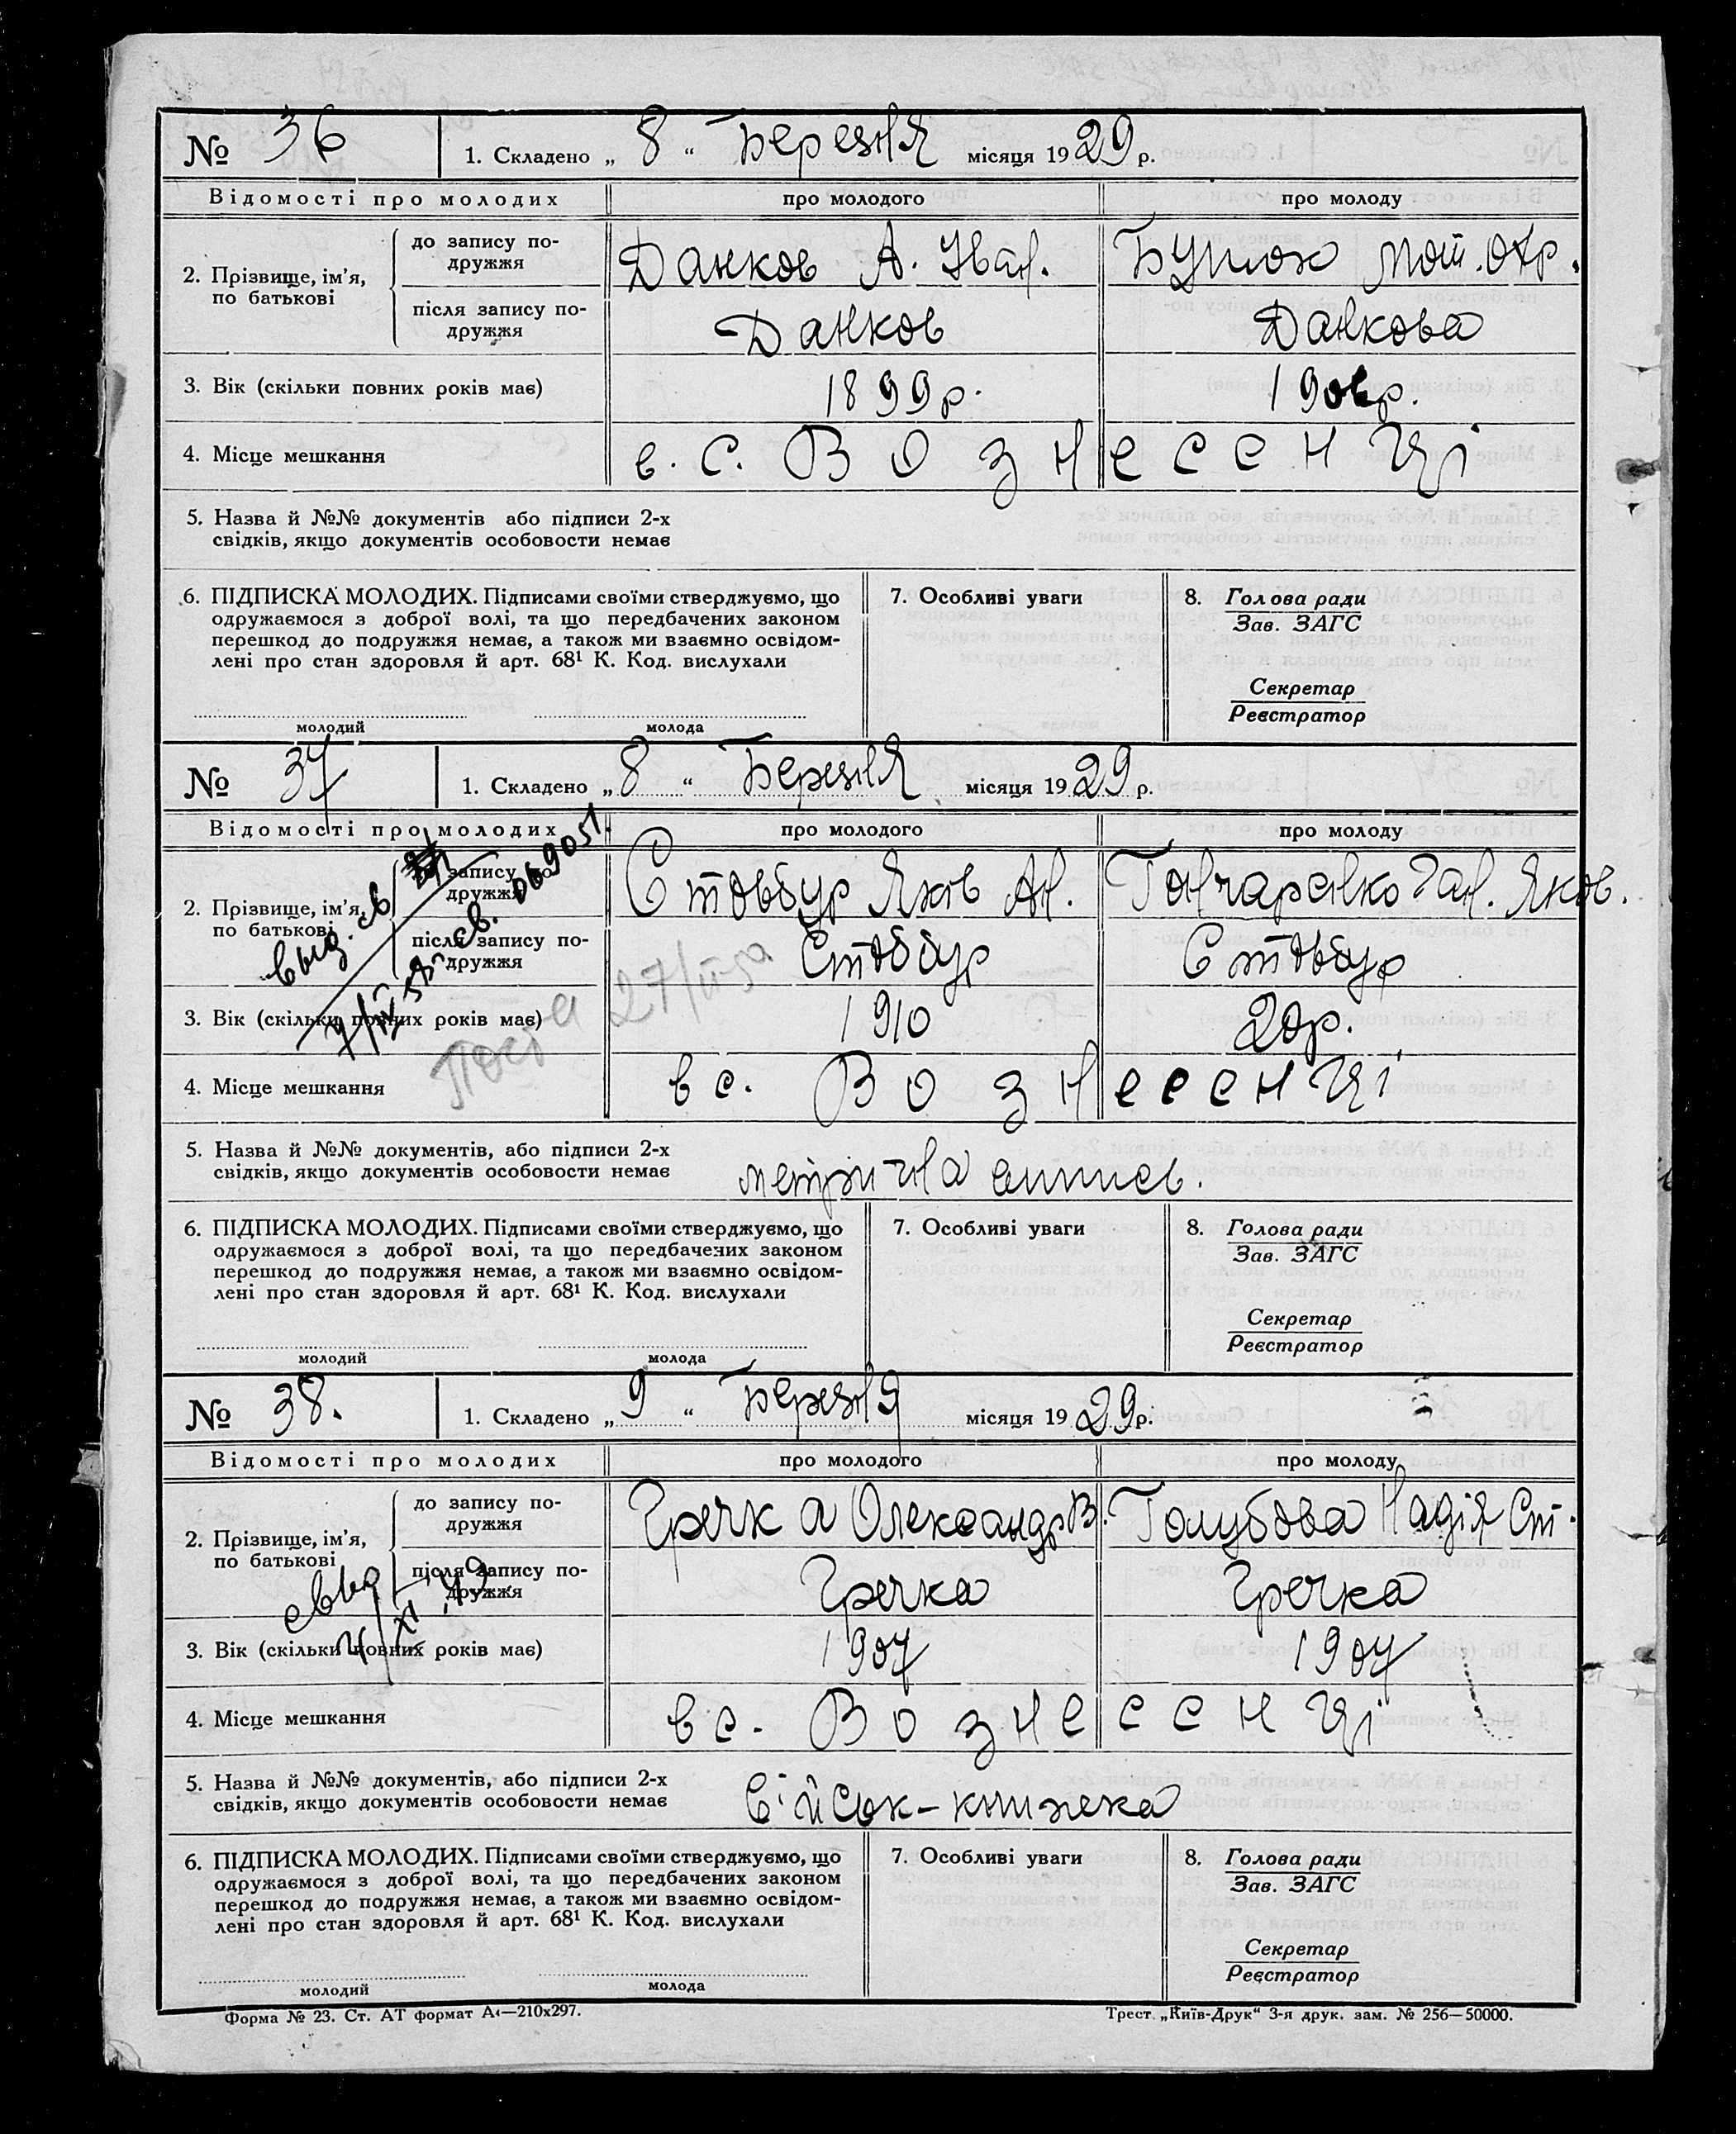 № 36 1. Складено „ 8 “ Березня місяця 1929 р.
Відомості про молодих про молодого про молоду
2. Прізвище, ім’я, по батькові
до запису подружжя Данков А. Іван. Мот.
після запису по-
дружжя Данков Данкова
3. Вік (скільки повних років має) 1899 р.
4. Місце мешкання в. с. Вознесенці
5. Назва й №№ документів або підписи 2-х
свідків, якщо документів особовости немає
6. ПІДПИСКА МОЛОДИХ. Підписами своїми стверджуємо, що
одружаємося з доброї волі, та що передбачених законом
перешкод до подружжя немає, а також ми взаємно освідом-
лені про стан здоровля й арт. 68¹ К. Код. вислухали
молодий молода
7. Особливі уваги
8. Голова ради
Зав. ЗАГС
Секретар
Реєстратор
№ 37 1. Складено „ 8 “ Березня місяця 1929 р.
Відомості про молодих про молодого про молоду
2. Прізвище, ім’я,
по батькові
запису по-
дружжя Стовбур Яків Ан. Гончаренко Ган. Яков.
після запису по-
дружжя Стовбур Стовбур
выд. св. 069051.
3. Вік (скільки повних років має) 1910 20 р.
4. Місце мешкання в с. Вознесенці
5. Назва й №№ документів, або підписи 2-х
свідків, якщо документів особовости немає метрична
6. ПІДПИСКА МОЛОДИХ. Підписами своїми стверджуємо, що
одружаємося з доброї волі, та що передбачених законом
перешкод до подружжя немає, а також ми взаємно освідом-
лені про стан здоровля й арт. 68¹ К. Код. вислухали
молодий молода
7. Особливі уваги
8. Голова ради
Зав. ЗАГС
Секретар
Реєстратор
№ 38. 1. Складено „ 9 “ Березня місяця 1929 р.
Відомості про молодих про молодого про молоду
2. Прізвище, ім’я,
по батькові
до запису по-
дружжя Гречка Олександр В. Голубова Надія Ст.
після запису по-
дружжя Гречка Гречка
3. Вік (скільки повних років має) 1907 1907
4. Місце мешкання в с. Вознесенці
5. Назва й №№ документів, або підписи 2-х
свідків, якщо документів особовости немає Військ-книжка
6. ПІДПИСКА МОЛОДИХ. Підписами своїми стверджуємо, що
одружаємося з доброї волі, та що передбачених законом
перешкод до подружжя немає, а також ми взаємно освідом-
лені про стан здоровля й арт. 68¹ К. Код. вислухали
молодий молода
7. Особливі уваги
8. Голова ради
Зав. ЗАГС
Секретар
Реєстратор
Форма № 23. Ст. АТ формат А₄—210х297. Трест „Київ-Друк“ 3-я друк. зам. № 256—50000.